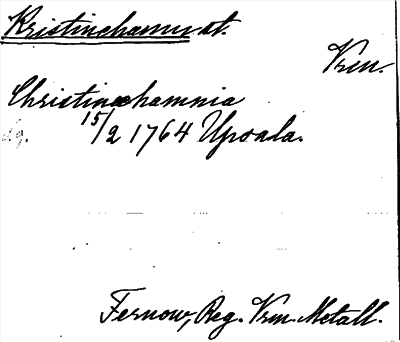 Kristinehamn st.
Vrm.
Christinæhamnia
15/2 1764 Upsala.
Fernow, Reg. Vrm. Metall.